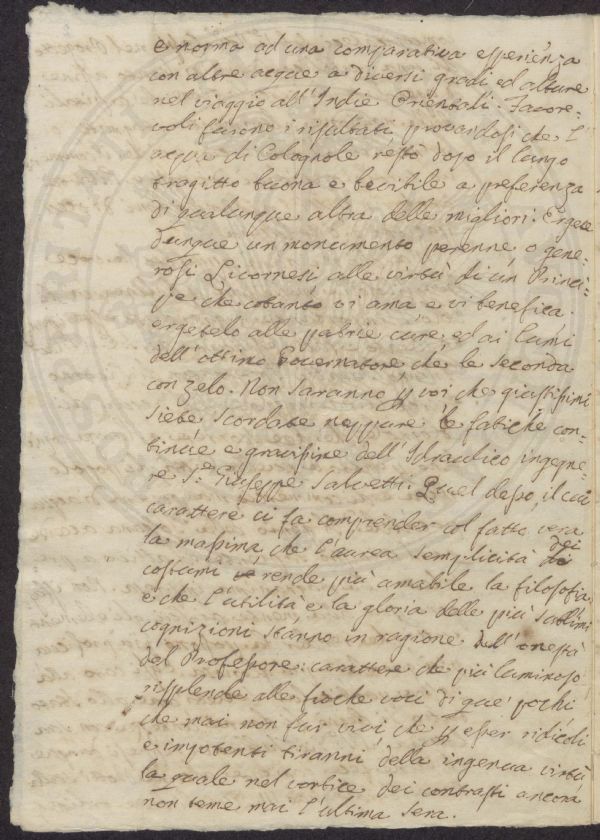 e norma ad una comparativa esperienza
con altre acque a diversi gradi ed alture
nel viaggio all'Indie Orientali. Favore-
voli furono i risultati provandosi che l'
acqua di Colognole restò dopo il lungo
tragitto buona e bevibile a preferenza
di qualunque altra delle migliori. Ergete
dunque un monumento perenne o gene-
rosi Livornesi alle virtù di un Princi-
pe che cotanto vi ama e vi benefica.
ergetelo alle patrie cure, ed ai lumi
dell'ottimo Governatore che le seconda
con zelo. Non saranno p voi che giustissimi
siete scordate neppure le fatiche con-
tinue e gravissime dell'Idraulico ingegne-
re S.r Giuseppe Salvetti. Quel desso, il cui
carattere ci fa comprender col fatto vera
la massima, che l'aurea semplicità dei
costumi rende più amabile la filosofia
e che l'utilità e la gloria delle più sublimi
cognizioni stanno in ragione dell'onestà
del Professore: carattere che più luminoso
risplende alle fioche voci di que' pochi
che mai non fur vivi che p esser ridicoli
e impotenti tiranni della ingenua virtù
la quale nel vortice dei contrasti ancora
non teme mai l'ultima sera.